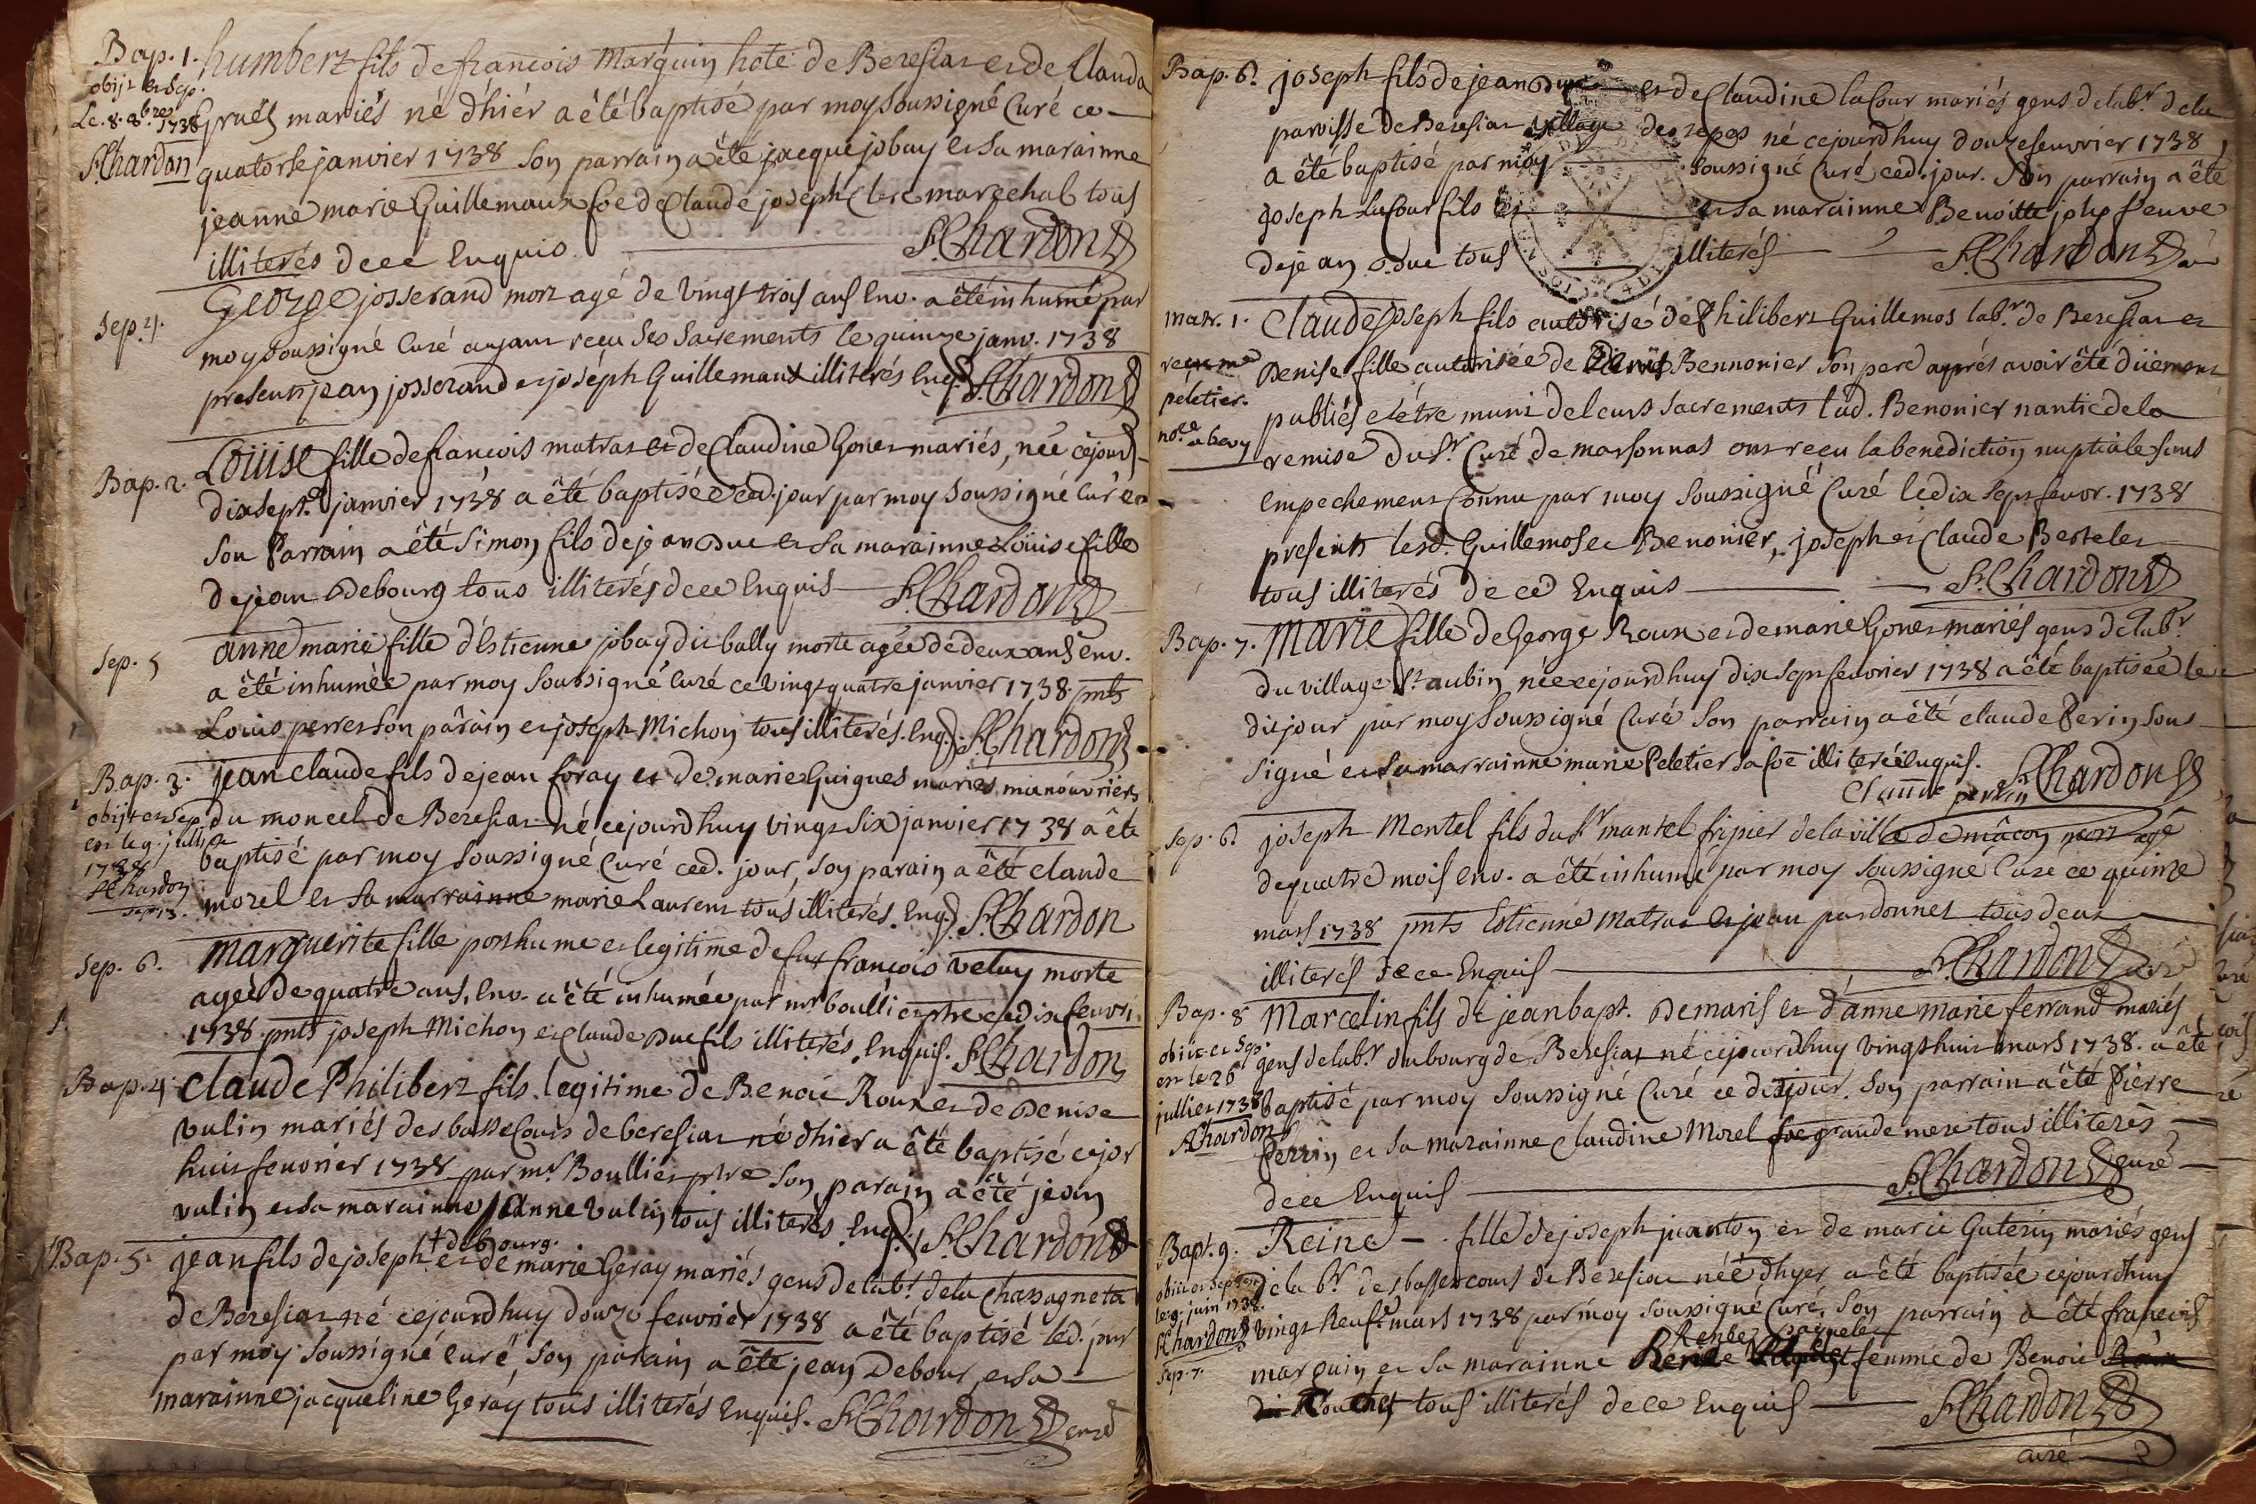 Bap. 1. humbert fils de françois Marquin hote de Beresiat et de Clauda
obijt et Sep.
Le. 8. 8.bre 1738 Gruel mariés né d'hiér a êté baptisé par moy Soussigné Curé ce
S.Chardon quatorse janvier 1738 Son parrain a êté jacque jobay et Sa marainne
jeanne marie Guillemaux foe de Claude joseph Clerc marechal tous
illiterés de ce Enquis S.Chardon
Sep. 4. George josserand mort agé de Vingt trois ans Env. a êté inhumé par
moy Soussigné Curé ayant reçu Ses Sacrements le quinze janv. 1738
presents jean josserand et joséph Guillemaux illiterés Enq. S.Chardon
Bap. 2. Loüise fille de francois matras et de Claudine Gonet mariés, née cejourd
dixsept.e janvier 1738 a êté baptisée ced. jour par moy Soussigné Curé
Son Parrain a êté Simon fils de jean Duc et Sa marainne Loüise fille
de jean Debourg tous illiterés de ce Enquis S.Chardon
Sep. 5 anne marie fille d'Estienne jobay dit bally morte agée de deux ans env.
a êté inhumée par moy Soussigné Curé ce vingt quatre janvier 1738. pnts
Louis perret Son parain et joseph Michon tous illiterés. Enq. S.Chardon
Bap. 3. jean claude fils de jean foray et de marie Guigues mariés manouvriers
obijt et sep.
est le 9. juillet du moncel de Beresiat né cejourd huy vingt Six janvier 1738 a êté
1738 baptisé par moy Soussigné Curé ced. jour, Son parain a êté claude
S.Chardon
Sep. 13. morel et Sa marrainne marie Laurent tous illiterés. Enq. S.Chardon
Sep. 6. Marguerite fille posthume et legitime de fut françois Veluy morte
ageé de quatre ans, Env. a êté inhumée par mr boullier ptre ce dix feuvr.
1738. pnts joseph Michon et Claude Duc fils illiterés. Enquis. S.Chardon
Bap. 4. Claude Philibert fils legitime de Benoit Roux et de Denise
vulin mariés des basse Cours de beresiat né d'hier a êté baptisé cejor
huit feuvrier 1738 par mr. Boullier ptre Son parain a êté jean
vulin et sa marainne jeanne vulin tous illiterés. Enq. S.Chardon
+ debourg.
Bap. 5. jean fils de joseph + et de marie Geray mariés gens de lab.r de la Chassagneta
de Beresiat né cejourd huy douze feuvrier 1738 a êté baptisé led. jour
par moy Soussigné Curé, Son parain a êté jean Debour, et Sa
marainne jacqueline Geray tous illiterés Enquis. S.Chardon curé
Bap. 6. joseph fils de jean Duc et de Claudine laCour mariés gens de lab.r de la
paroisse de Beresiat village des repos né cejourdhuy douze feuvrier 1738
a êté baptisé par moy soussigné Curé ced. jour. Son parrain a êté
joseph LaCour fils et Sa marainne Benoitte joly feuve
de jean Duc tous illiterés S.Chardon
Matr. 1. Claude joseph fils autorisé de Philibert Guillemos lab.r de Beresiat et
reçu me Denise fille autorisée de Denis Bennonier Son pere aprés avoir êté düement
peletier. publiés et être muni de leurs Sacrements lad. Benonier nantie de la
no.re a bevy remise du S.r Curé de marsonnas ont reçu la benediction nuptiale Sans
Empechement Connu par moy Soussigné Curé le dix Sept feuvr. 1738
presents lesd. Guillemos et Benonier, joseph et Claude Bertelet
tous illiterés de ce Enquis S.Chardon
Bap. 7. Marie fille de George Roux et de marie Gonet mariés gens de lab.r
du village St aubin née cejourd huy dix Sept feuvrier 1738 a êté baptisée le
dit jour par moy Soussigné Curé Son parrain a êté claude Perin Sous
signé et Sa marrainne marie Peletier Sa foe illiterée Enquis. S.Chardon
Claude perrin
Sep. 6. joseph Mentel fils du S.r mantel fripier de la ville de mâcon mort agé
de quatre mois Env. a êté inhumé par moy Soussigné Curé ce quinze
mars 1738 pnts Estienne Matras et jean pardonnet tous deux
illiterés de ce Enquis S.Chardon curé
Bap. 8 Marcelin fils de jean bapt. Demaris et d'anne marie ferrand mariés
obiit et Sep.
est le 26 gens de lab.r du bourg de Beresiat né cejourdhuy vingt huit mars 1738. a êté
jullier 1738 baptisé par moy Soussigné Curé ce dit jour. Son parrain a êté Pierre
S.Chardon
Perrin et Sa marainne Claudine Morel foe grande mere tous illiterés
de ce Enquis S.Chardon curé
Bapt. 9. Reine fille de joseph jeanton et de marie Guterin mariés gens
obiit et Sep. est
le 9. juin 1738. de lab.r des basses cours de Beresiat née d'hyer a êté baptisée cejourdhuy
S.Chardon vingt Neuf.e mars 1738 par moy Soussigné Curé, Son parrain a êté francois
Sep. 7. marquin et Sa marainne femme de Benoit
tous illiterés de ce Enquis S.Chardon
curé